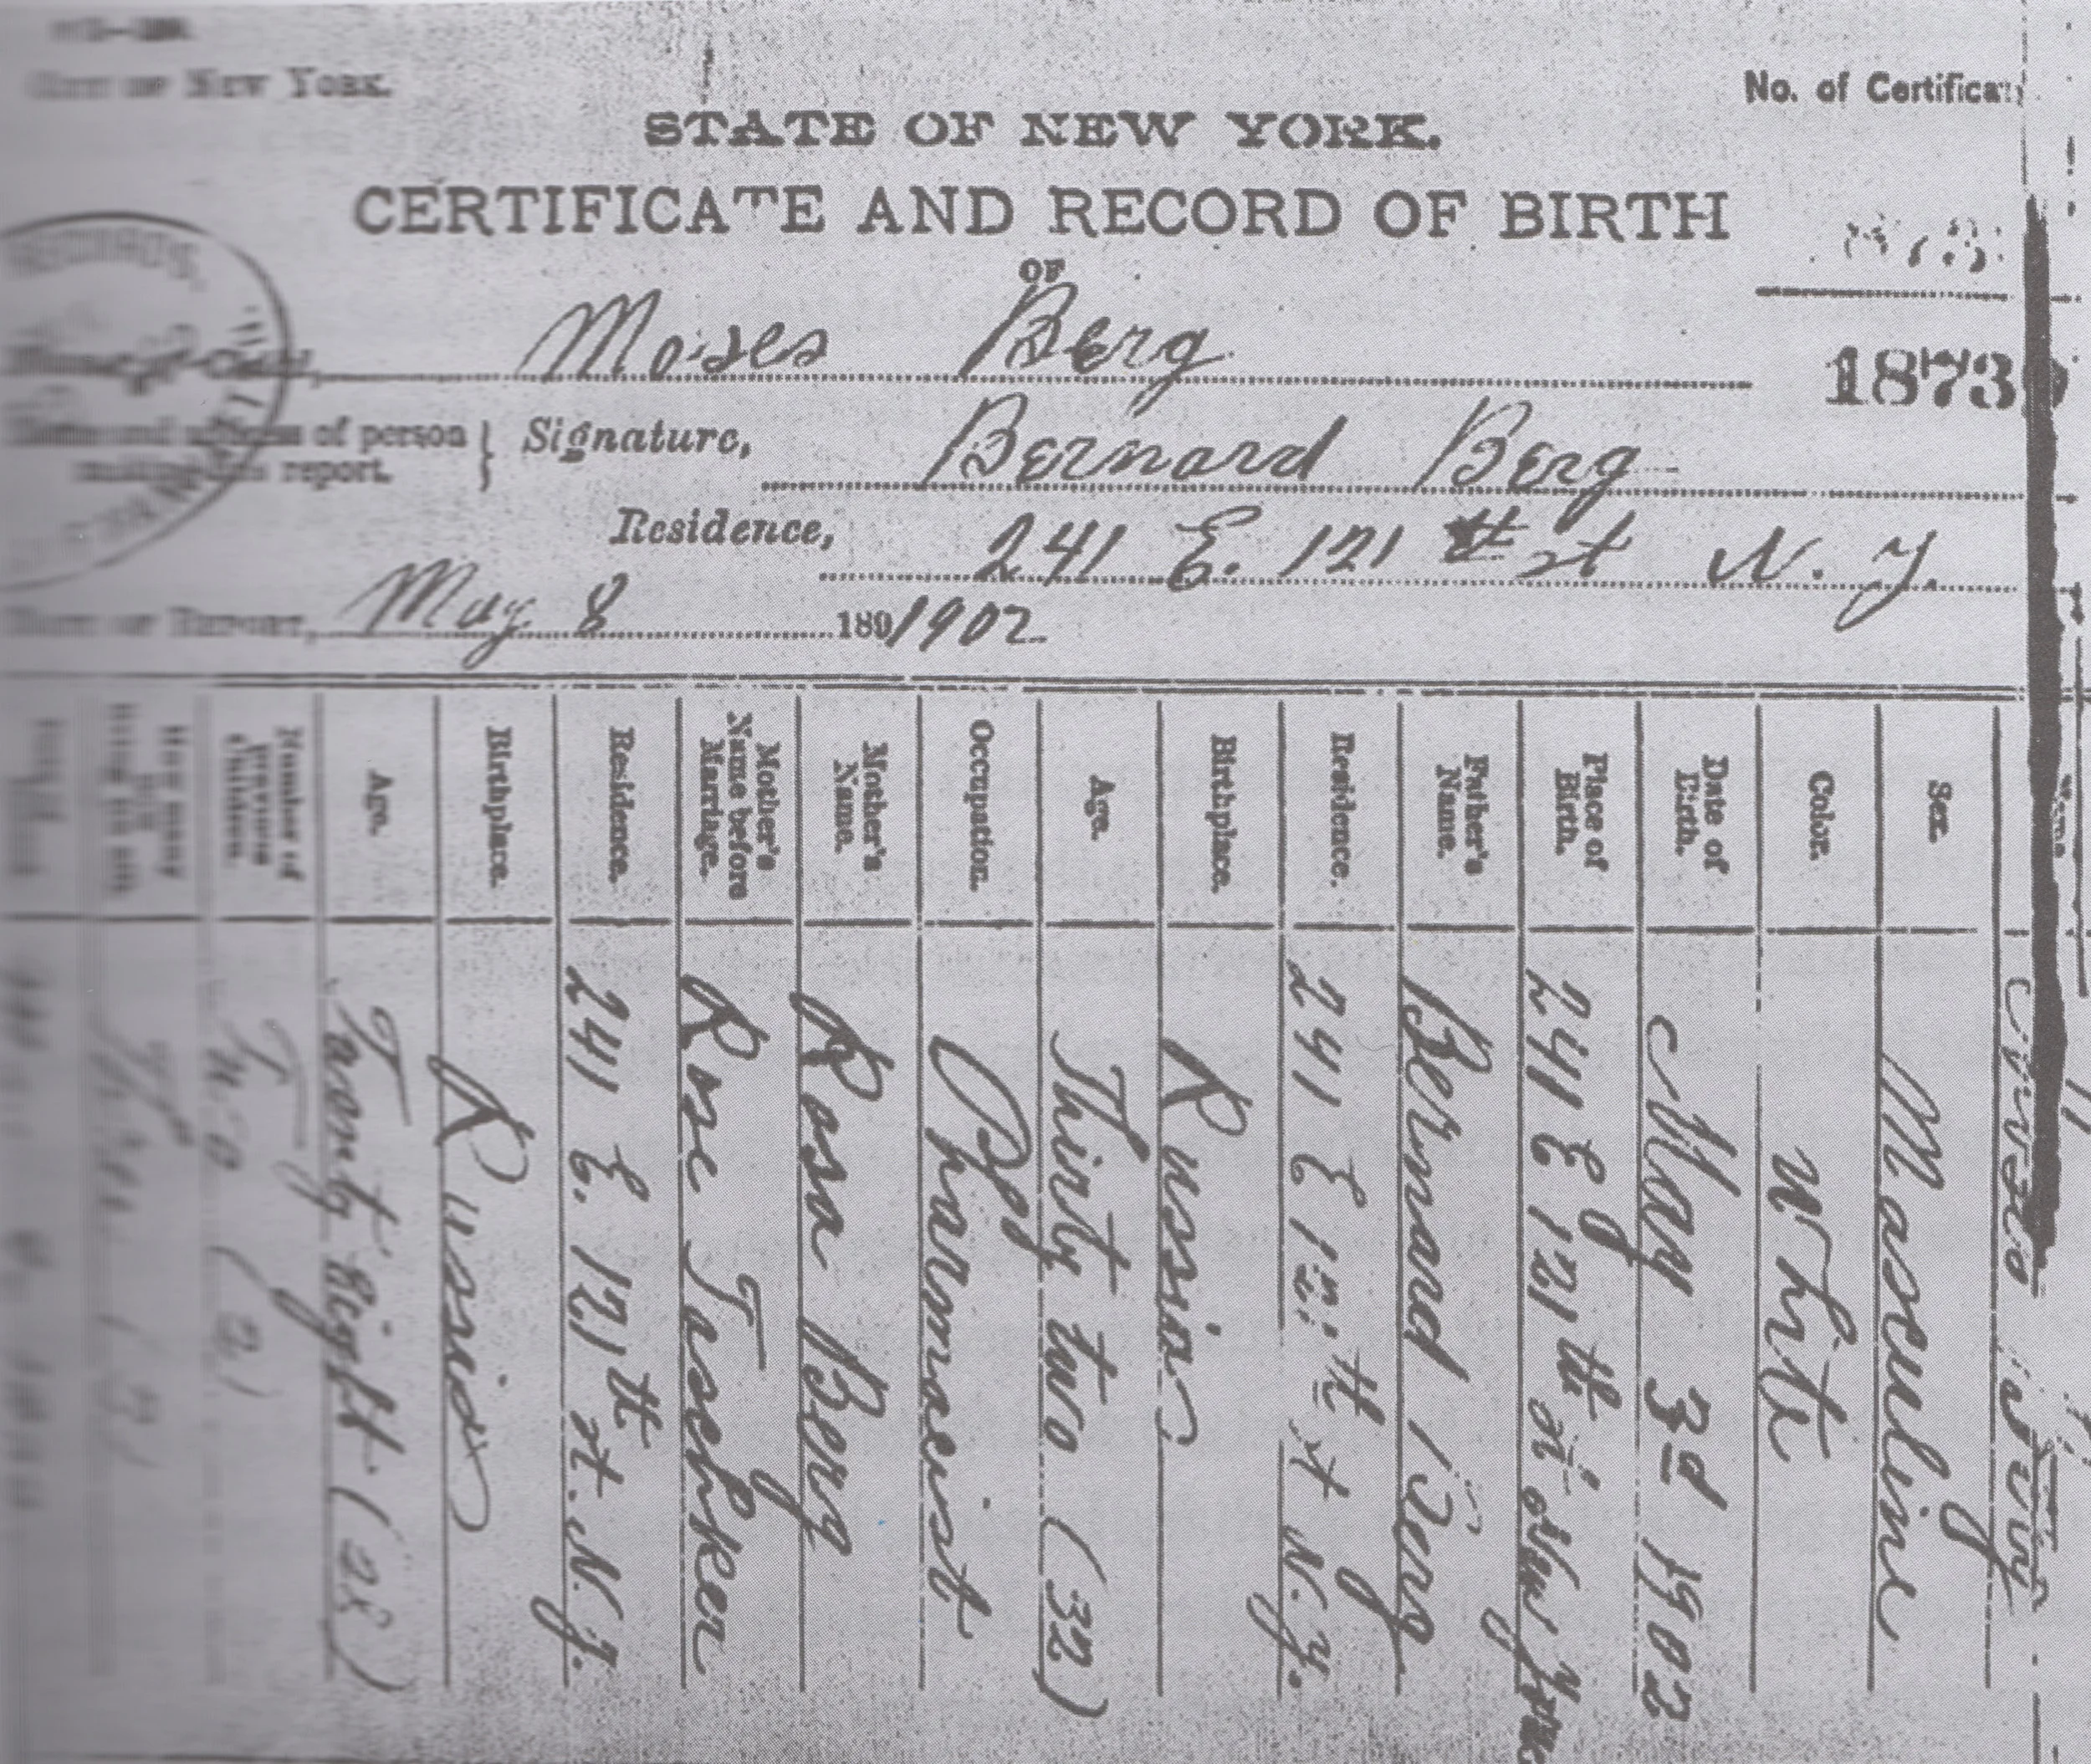 CITY OF NEW YORK.
No. of Certificat
STATE OF NEW YORK.
CERTIFICATE AND RECORD OF BIRTH
OF
Moses Berg
18739
Name and address of person making this report.
Signature, Bernard Berg
Residence, 241 E. 121 st N. Y.
DATE OF REPORT, May 8 189 1902
Sex. Masculine
Color. White
Date of Birth. May 3d 1902
Place of Birth. 241 E 121 th st New York
Father's Name. Bernard Berg
Residence. 241 E 121 th st N. Y.
Birthplace. Russia
Age. Thirty two (32)
Occupation. Pharmacist
Mother's Name. Rosa Berg
Mother's Name before Marriage. Rose Tashker
Residence. 241 E. 121 th st. N. Y.
Birthplace. Russia
Age. Twenty Eight (28)
Number of previous Children. Two (2)
How many now living (in all) Three (3)